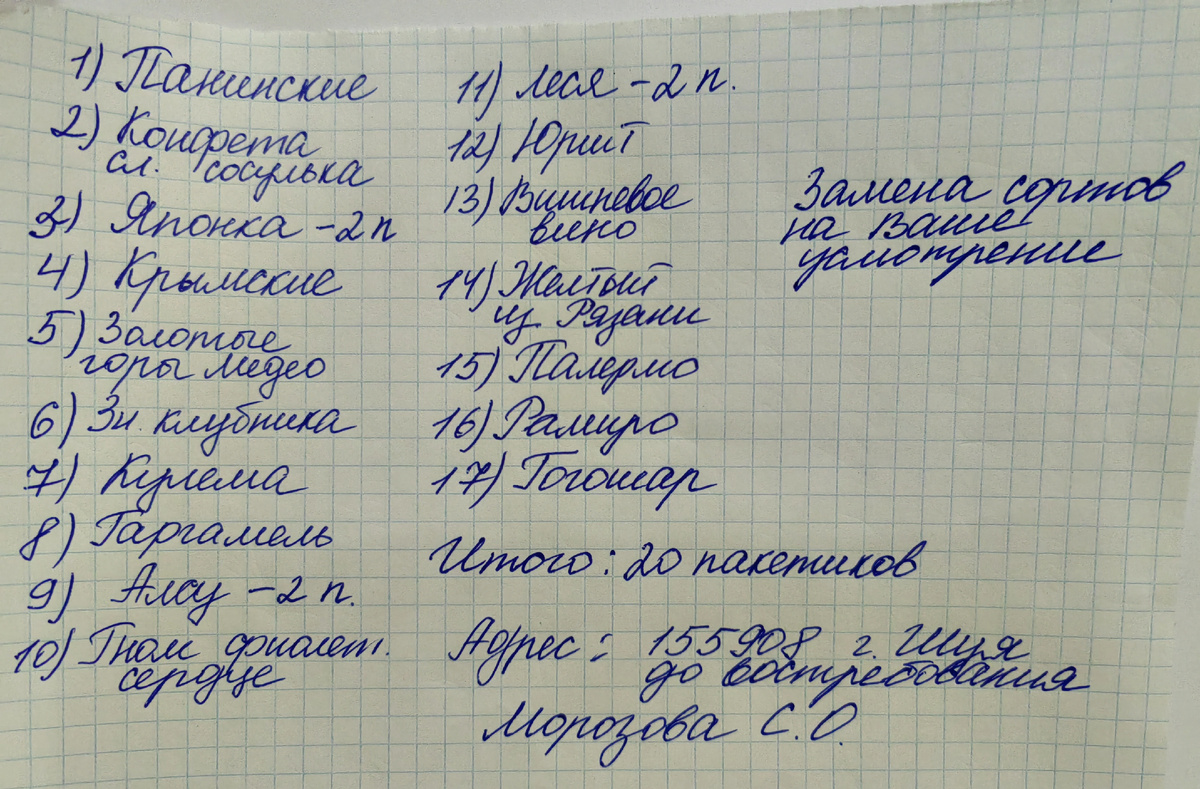 1) Панинские
2) Конфета
сл. сосулька
3) Японка - 2 п
4) Крымские
5) Золотые
горы Медео
6) Зн. клубника
7) Кулема
8) Гаргамель
9) Алсу - 2 п.
10) Гном фиолет.
сердце
11) Леся - 2 п.
12) Юрит
13) Вишневое
вино
14) Желтый
из Рязани
15) Палермо
16) Рамиро
17) Гогошар
Замена сортов
на Ваше
усмотрение
Итого: 20 пакетиков
Адрес: 155908 г. Шуя
до востребования
Морозова С.О.